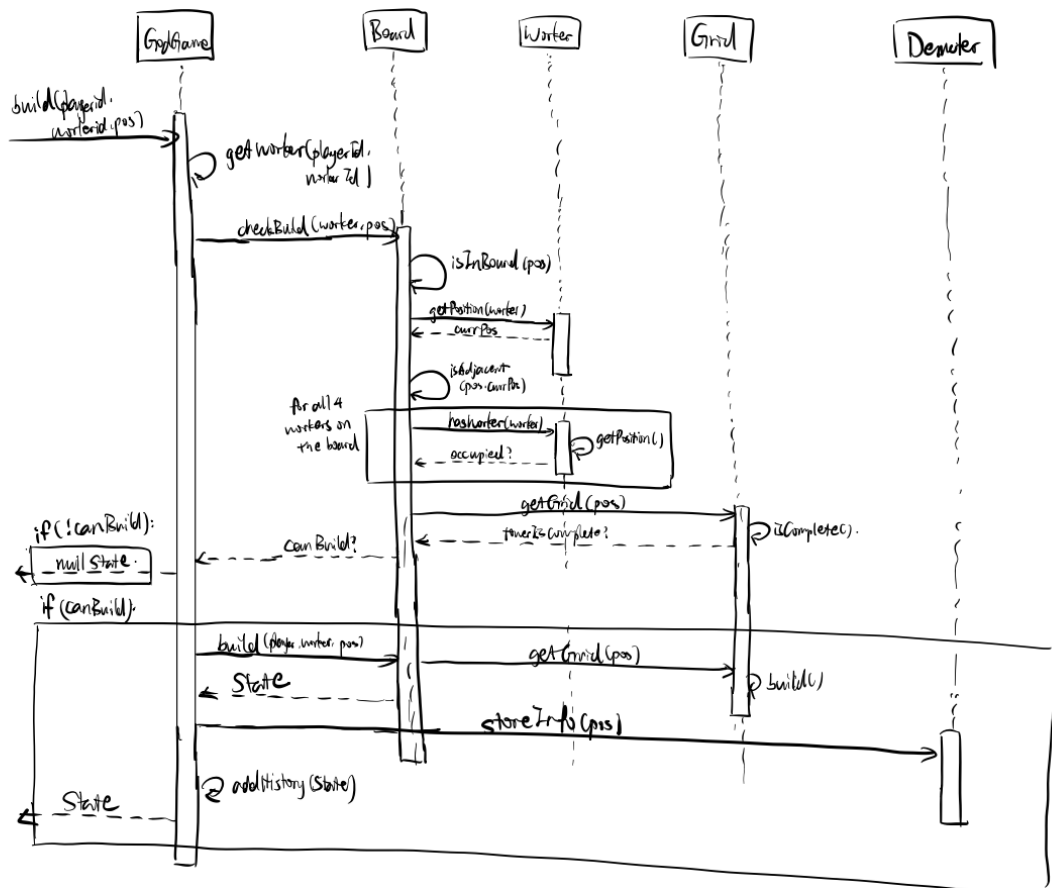 GodGame
Board
Worker
Grid
Demeter
build(playerid,
workerid,pos)
getWorker(playerId,
workerId)
checkBuild(worker,pos)
isInBound(pos)
getPosition(worker)
currPos
isAdjacent
(pos,currPos)
for all 4
workers on
the board
hasWorker(worker)
getPosition()
occupied?
getGrid(pos)
isComplete().
towerIsComplete?
canBuild?
if (!canBuild):
null State.
if (canBuild):
build(player,worker,pos)
getGrid(pos)
build()
State
storeInfo(pos)
addHistory(State)
State